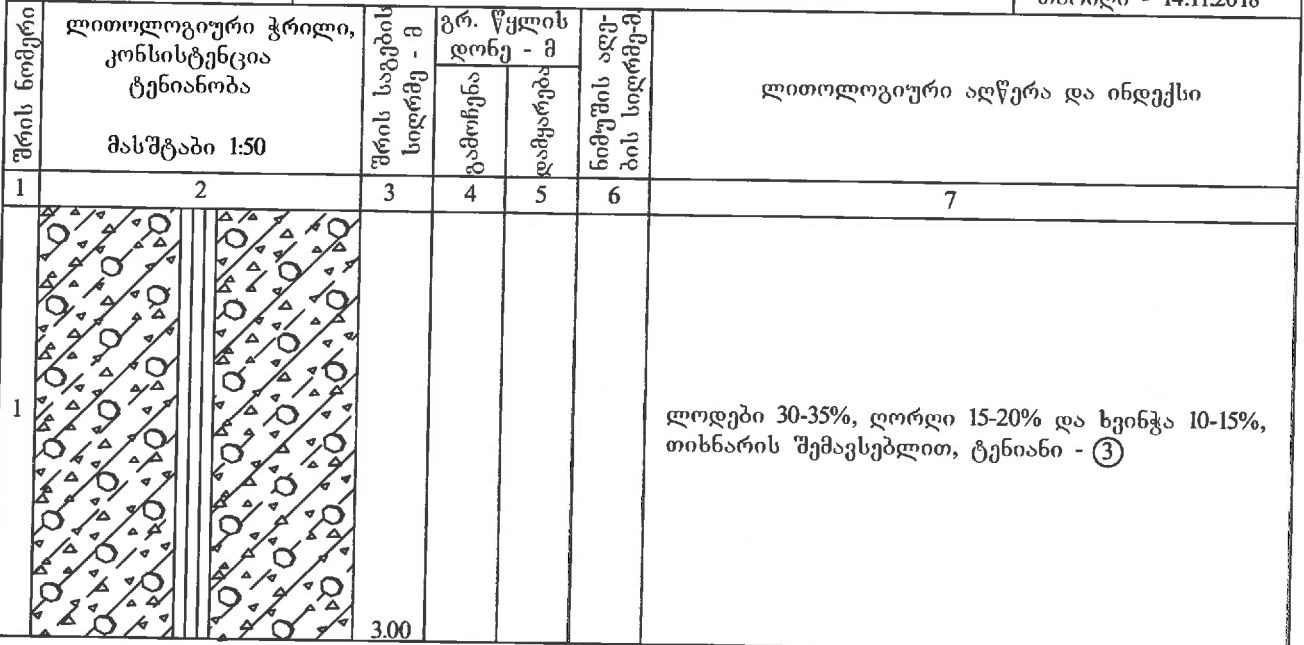 თარიღი - 14.11.2018
შრის ნომერი
ლითოლოგიური ჭრილი,
კონსისტენცია
ტენიანობა
მასშტაბი 1:50
შრის საგების
სიღრმე - მ
გრ. წყლის
დონე - მ
გამოჩენა
დამყარება
ნიმუშის აღე-
ბის სიღრმე-მ.
ლითოლოგიური აღწერა და ინდექსი
1 2 3 4 5 6 7
1
ლოდები 30-35%, ღორღი 15-20% და ხვინჭა 10-15%,
თიხნარის შემავსებლით, ტენიანი - 3
3.00